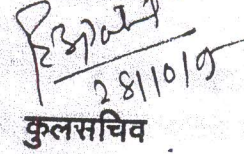 28/10/09
कुलसचिव